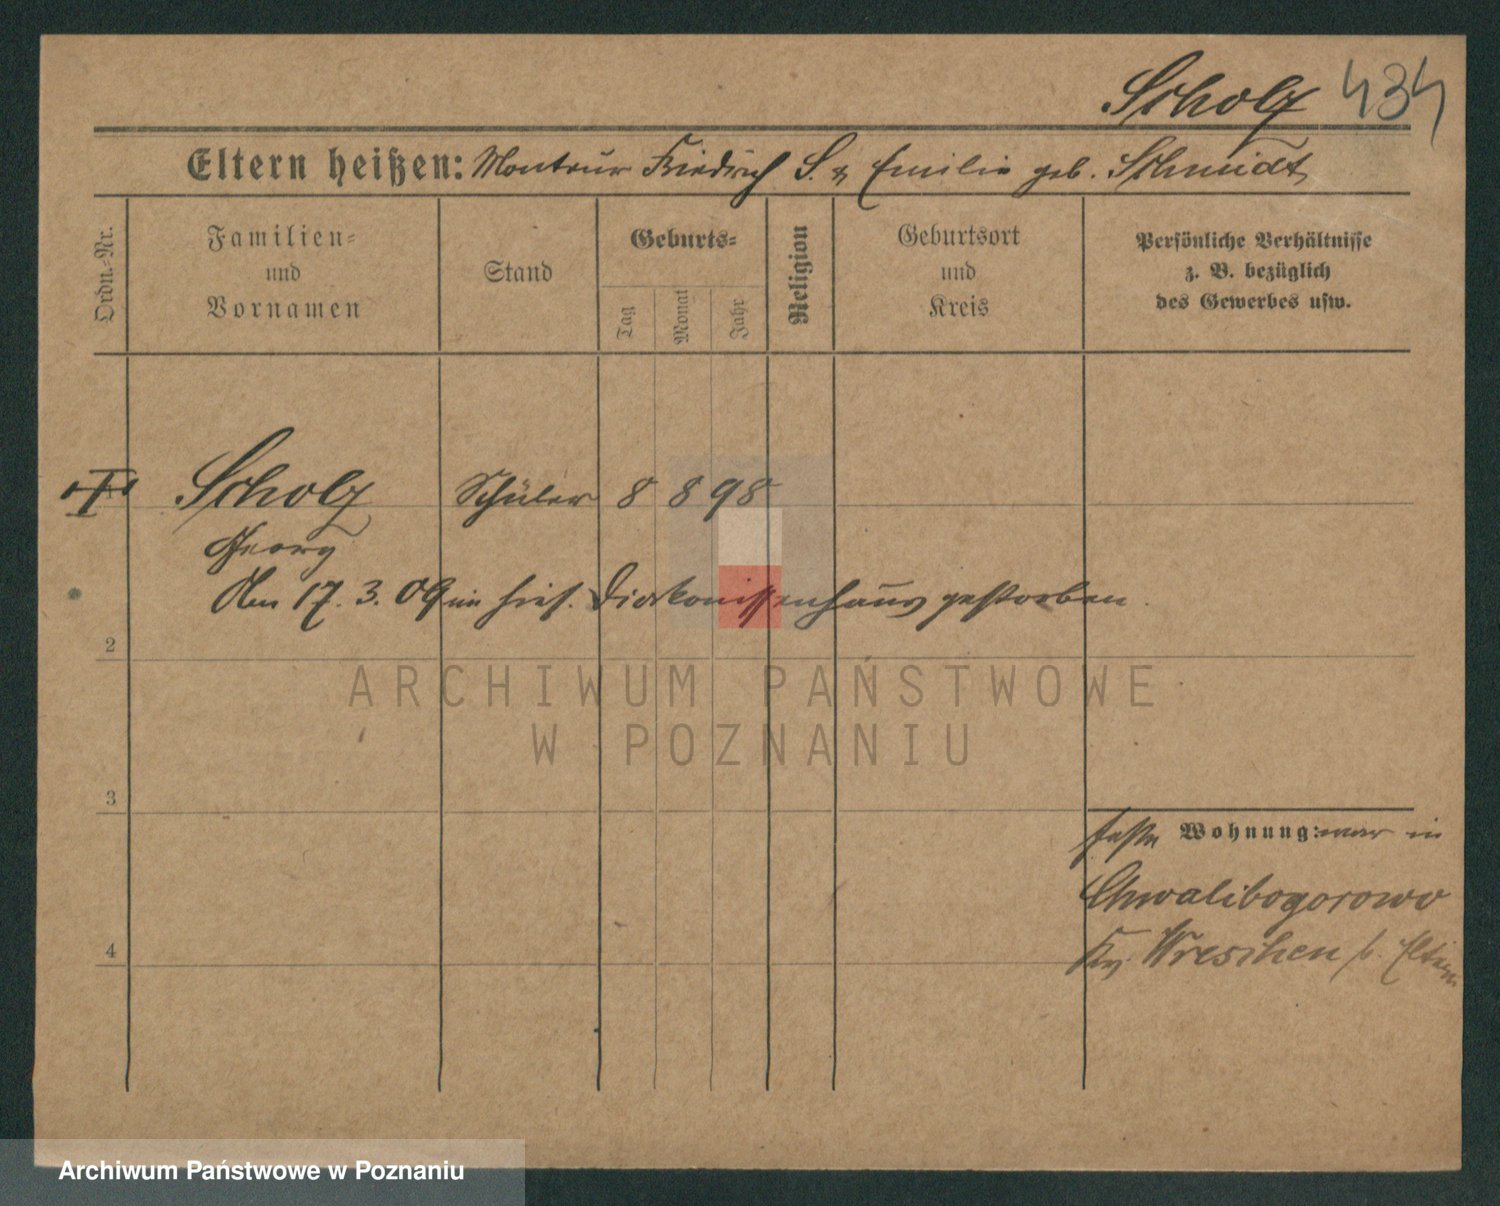 Scholz 434
Eltern heißen: Monteur Friedrich S. & Emilie geb. Schmidt
Ordn.-Nr.
Familien-
und
Vornamen
Stand
Geburts-
Tag
Monat
Jahr
Religion
Geburtsort
und
Kreis
Persönliche Verhältnisse
z. B. bezüglich
des Gewerbes usw.
Scholz Schüler 8 8 98
Georg
Am 17. 3. 09 im hies. Diakonissenhaus gestorben.
2
ARCHIWUM PAŃSTWOWE
W POZNANIU
3
feste Wohnung: war in
Chwalibogorowo
4
Kr. Wreschen b. Eltern
Archiwum Państwowe w Poznaniu